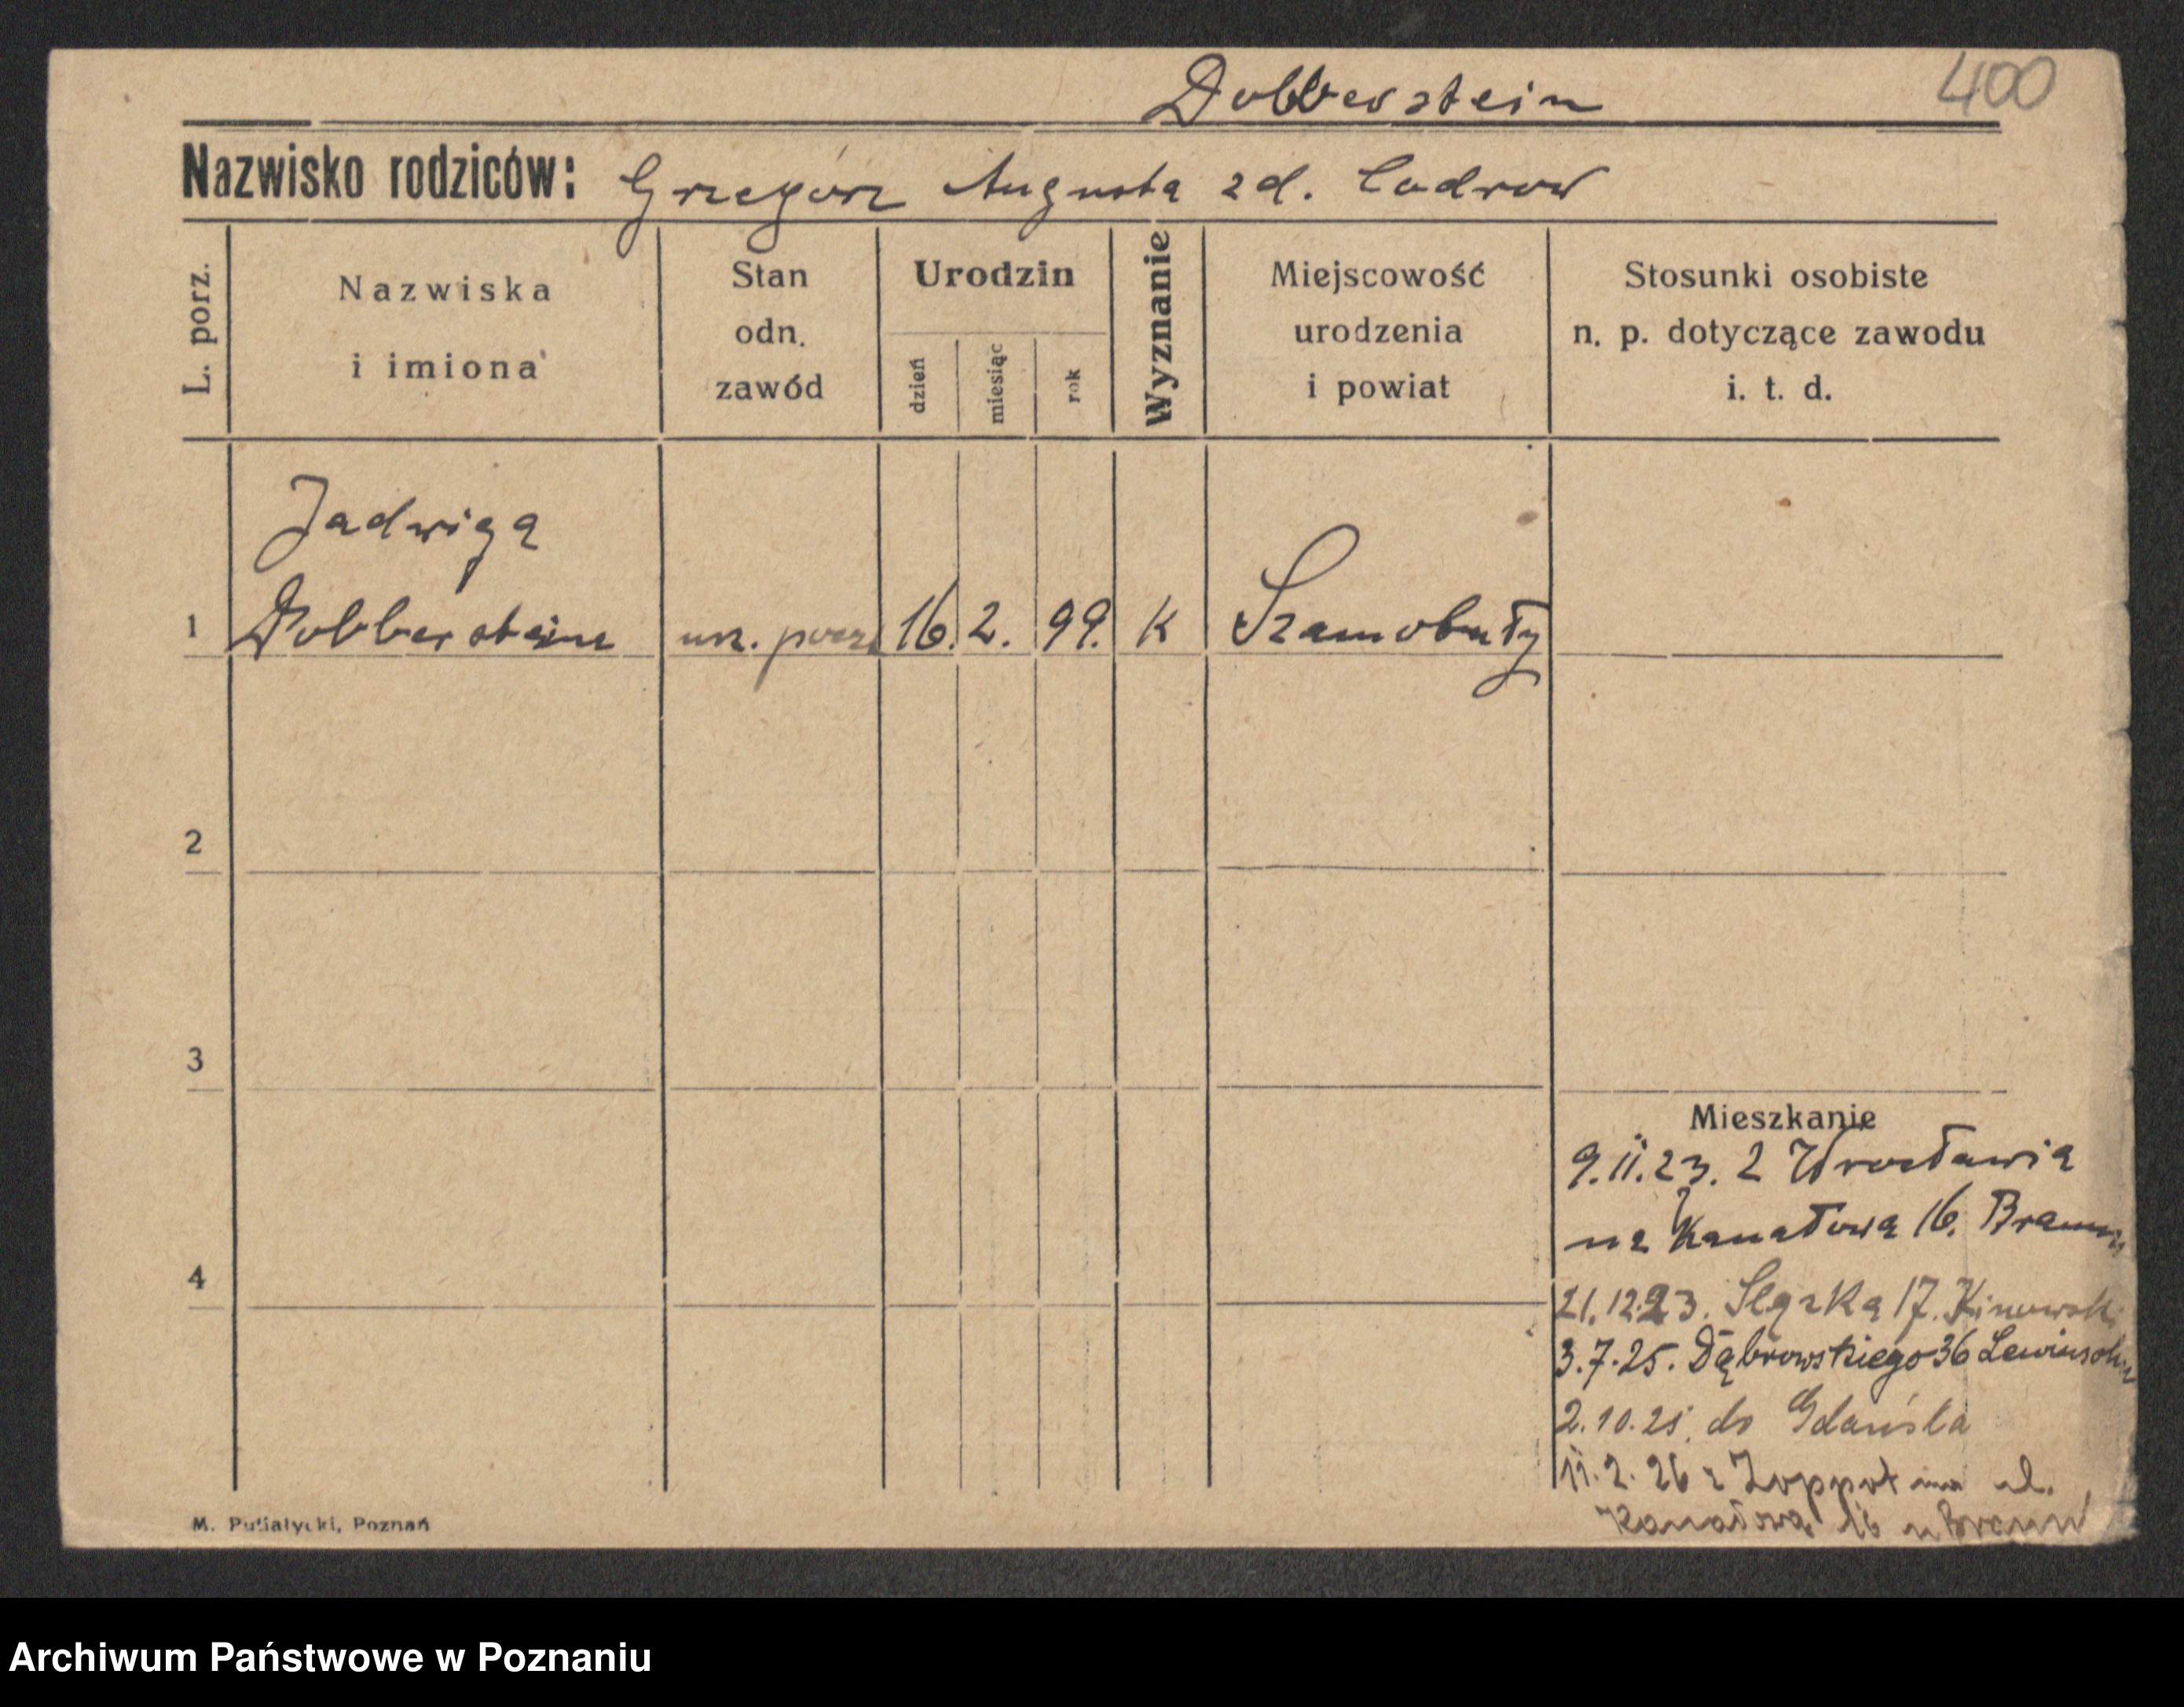 Dobberstein
400
Nazwisko rodziców: Grzegorz Augusta zd.
L. porz.
Nazwiska
i imiona
Stan
odn.
zawód
Urodzin
dzień
miesiąc
rok
Wyznanie
Miejscowość
urodzenia
i powiat
Stosunki osobiste
n. p. dotyczące zawodu
i. t. d.
Jadwiga
1 Dobberstein urz. 16. 2. 99. K Szamotuły
2
3
4
Mieszkanie
9.11.23. z Wrocławia
na Kanałową 16.
21.12.23. 17.
3.7.25. Dąbrowskiego 36
2.10.25. do Gdańska
11.2.26 z Zoppot na ul.
Kanałową 16 u
M. Putiatycki, Poznań
Archiwum Państwowe w Poznaniu